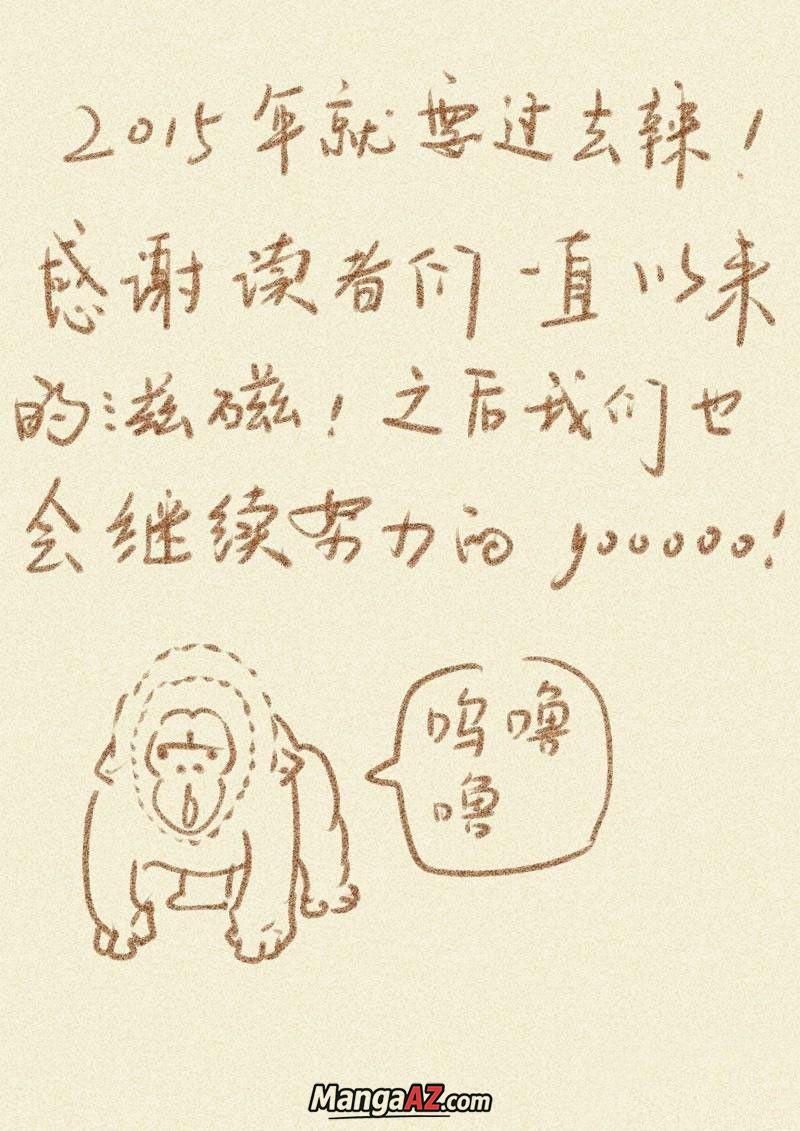 2015年就要过去辣！
感谢读者们一直以来
的滋磁！之后我们也
会继续努力的 yooooo!
呜噜
噜
MangaAZ.com